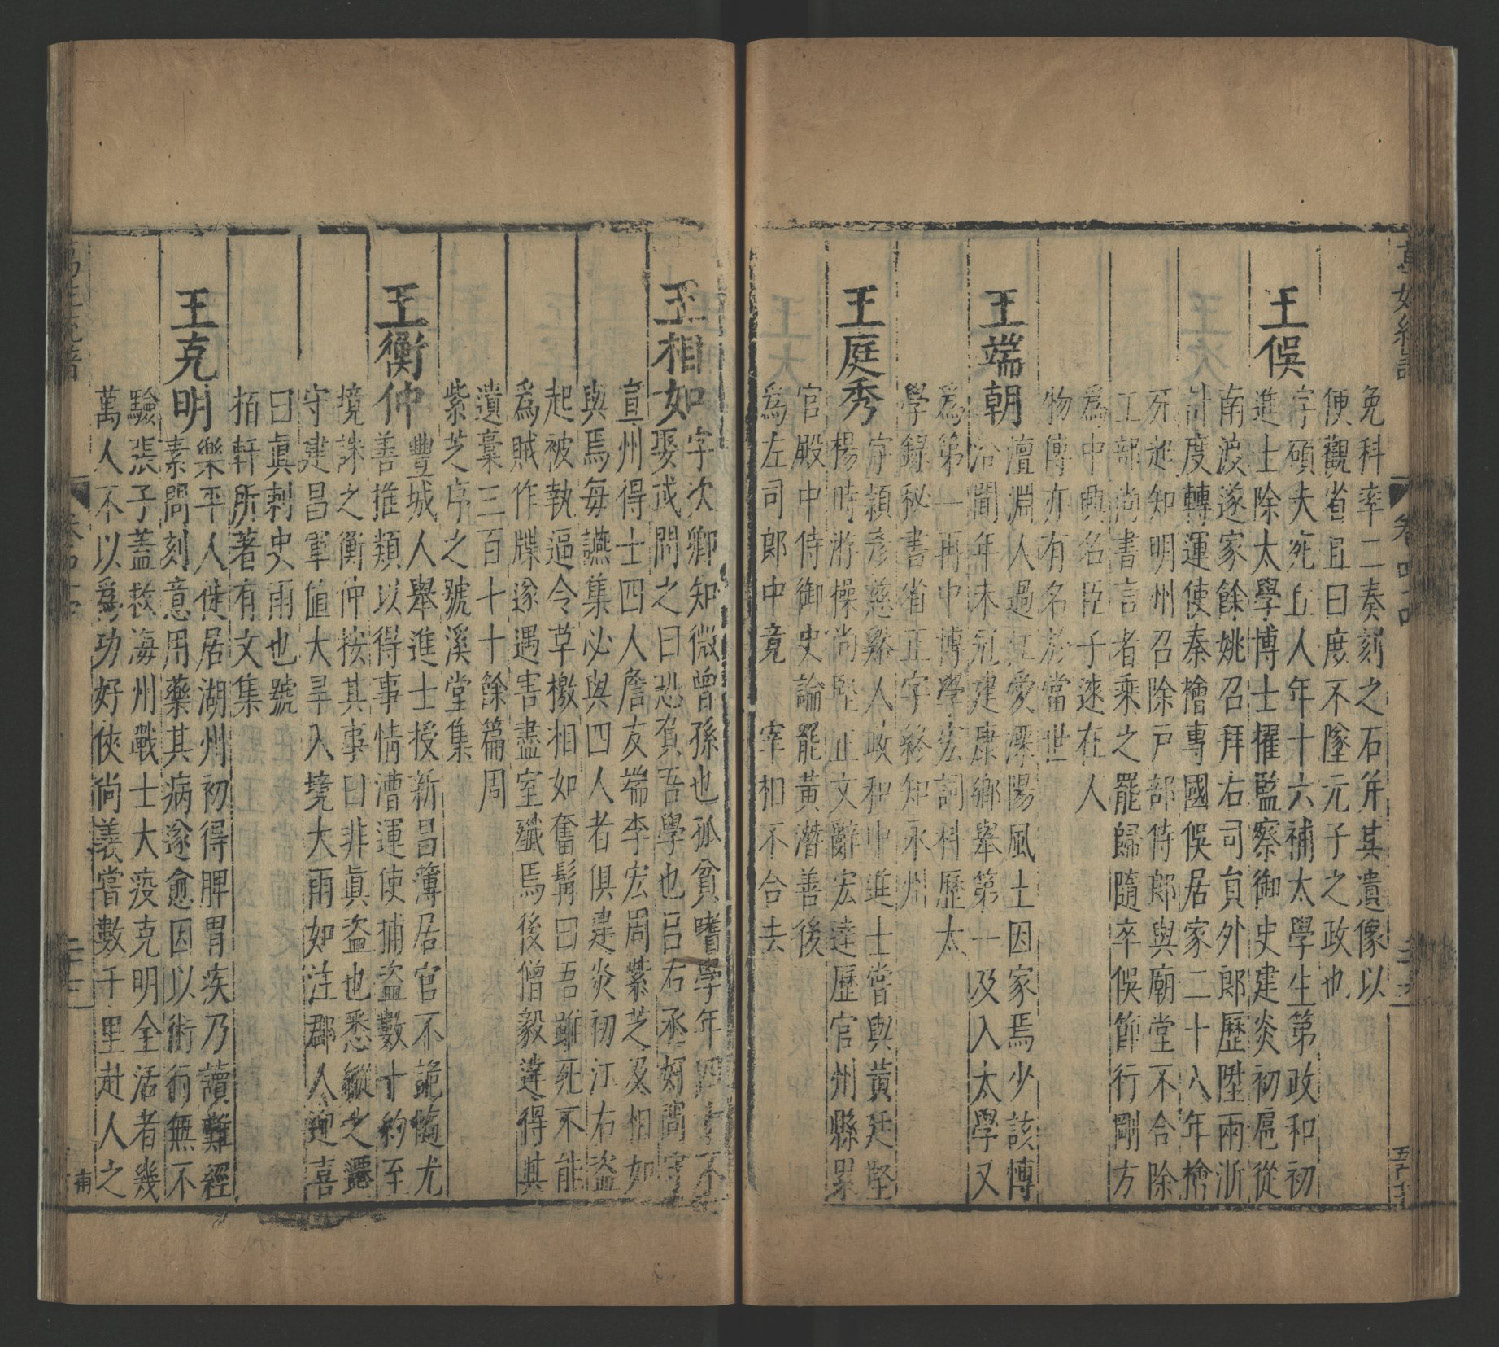 免科率二奏刻之石并其遺像以
便觀省且曰庶不墜元子之政也
王俁
字碩夫宛丘人年十六補太學生第政和初
進士除太學博士擢監察御史建炎初扈從
南渡遂家餘姚召拜右司貟外郎歷陞兩浙
計度轉運使秦檜專國俁居家二十八年檜
死起知明州召除戸部侍郎與廟堂不合除
工部尚書言者乘之罷歸隨卒俁節行剛方
為中興名臣子逨在人
物傳亦有名於當世
王端朝
澶淵人過江愛溧陽風土因家焉少該慱
洽間年未冠建康鄉舉第一及入太學又
為第一再中博學宏詞科歷太
學錄秘書省正字終知永州
王庭秀
字頴彦慈谿人政和中進士嘗與黃廷堅
楊時游操尚堅正文辭宏達歷官州縣累
官殿中侍御史論罷黃潛善後
為左司郎中竟　宰相不合去
王相如
字次卿知微曾孫也孤貧嗜學年四十不
娶或問之曰恐負吾學也吕右丞好問守
宣州得士四人詹友端李宏周紫芝及相如
與焉每讌集必與四人者俱建炎初江右盗
起被執逼令草檄相如奮髯曰吾斷死不能
為賊作牒遂遇害盡室殲焉後僧毅逹得其
遺稾三百十十餘篇周
紫芝序之號溪堂集
王衡仲
豐城人舉進士授新昌簿居官不詭隨尤
善推類以得事情漕運使捕盗數十約至
境誅之衡仲按其事曰非眞盗也悉縱之遷
守建昌軍值大旱入境大雨如注郡人迎喜
曰眞刺史雨也號
栢軒所著有文集
王克明
樂平人徙居湖州初得脾胃疾乃讀難經
素問刻意用藥其病遂愈因以術行無不
驗張子蓋救海州戰士大疫克明全活者幾
萬人不以爲功好俠尚義嘗數千里赴人之